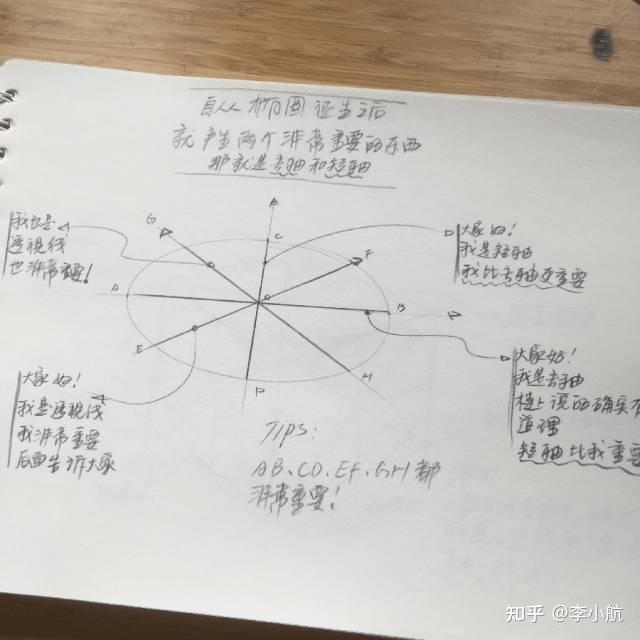 自从椭圆诞生后
就产生两个非常重要的东西
那就是长轴和短轴
我也是
透视线
也非常重要!
大家好!
我是短轴
我比长轴更重要
G
C
F
A
O
B
E
D
H
大家好!
我是透视线
我非常重要
后面告诉大家
大家好!
我是长轴
楼上说的确实有
道理
短轴比我重要
TIPS:
AB、CD、EF、GH都
非常重要!
知乎 @李小航